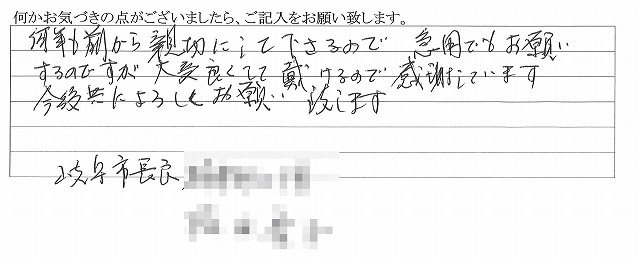 何かお気づきの点がございましたら、ご記入をお願い致します。
何年も前から親切にして下さるので 急用でもお願い
するのですが 大変良くして戴けるので 感謝しています
今後共によろしくお願い致します
岐阜市長良